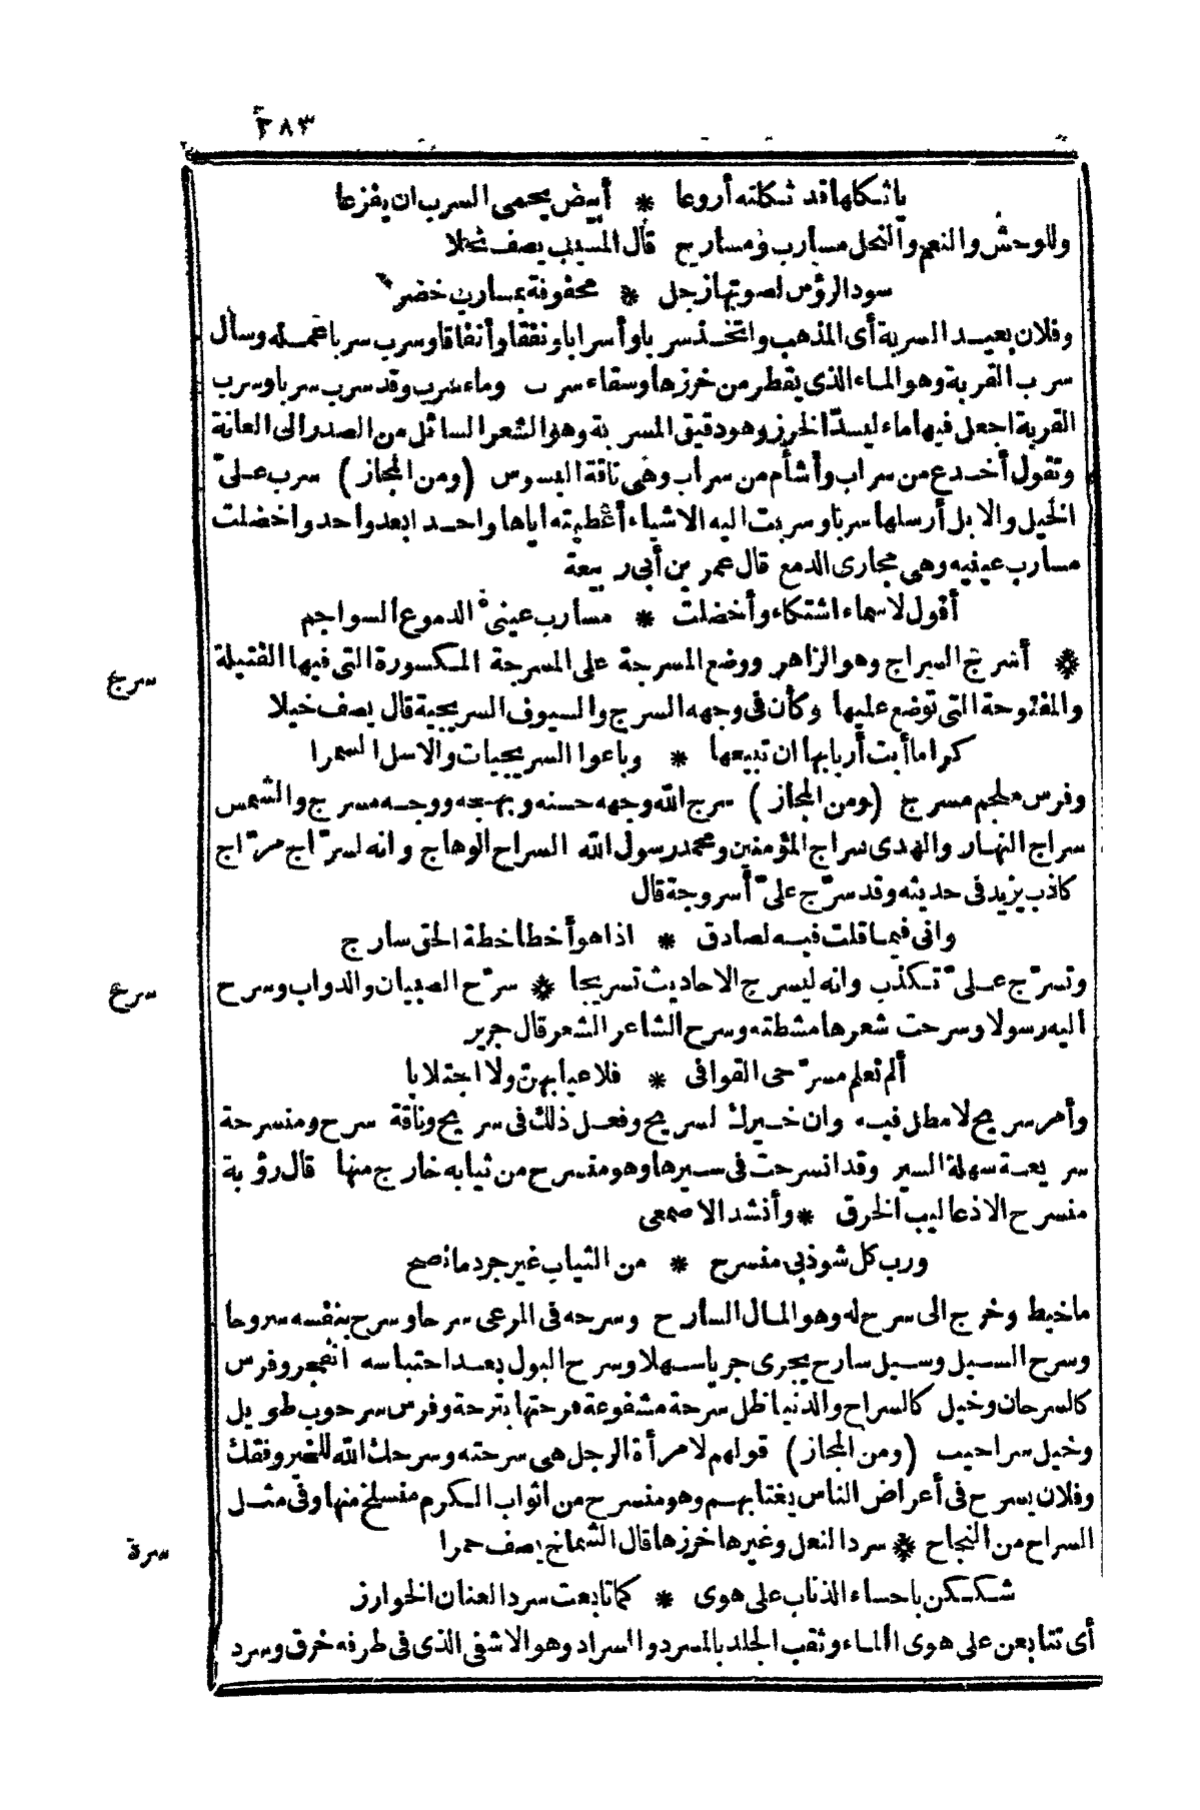 ٢٨٣
يا ثكلها قد ثكلته أروعا * أبيض يحمى السرب ان يفزعا
وللوحش والنعم والنحل مسارب ومسارح قال المسيب يصف نحلا
سود الرؤس لصوتها زجل * محفوفة بمسارب خضر
وفلان بعيد السربة أى المذهب واتخذ سربا وأسرابا ونفقا وأنفاقا وسرب سربا عمله وسال
سرب القربة وهو الماء الذى يقطر من خرزها وسقاء سرب وماء سرب وقد سرب سربا وسرب
القربة اجعل فيها ماء ليسدّ الخرز وهو دقيق المسربة وهو الشعر السائل من الصدر الى العانة
وتقول أخدع من سراب وأشأم من سراب وهى ناقة البسوس (ومن المجاز) سرب علىّ
الخيل والابل أرسلها سربا وسربت اليه الاشياء أعطيته اياها واحدا بعد واحد واخضلت
مسارب عينيه وهى مجارى الدمع قال عمر بن أبى ربيعة
أقول لاسماء اشتكاء وأخضلت * مسارب عينىّ الدموع السواجم
سرج
❋ أسرج السراج وهو الزاهر ووضع المسرجة على المسرجة المكسورة التى فيها الفتيلة
والمفتوحة التى توضع عليها وكأن فى وجهه السرج والسيوف السريجية قال يصف خيلا
كراما أبت أربابها ان تبيعها * وباعوا السريجيات والاسل السمرا
وفرس ملجم مسرج (ومن المجاز) سرج الله وجهه حسنه وبهجه ووجه مسرج والشمس
سراج النهار والهدى سراج المؤمنين ومحمد رسول الله السراج الوهاج وانه لسرّاج مرّاج
كاذب يزيد فى حديثه وقد سرّج علىّ أسروجة قال
وانى فيما قلت فيه لصادق * اذا هو أخطا خطة الحق سارج
وتسرّج علىّ تكذب وانه ليسرج الاحاديث تسريجا ❋ سرّح الصبيان والدواب وسرح
سرح
اليه رسولا وسرحت شعرها مشطته وسرح الشاعر الشعر قال جرير
ألم تعلم مسرّحى القوافى * فلا عيا بهنّ ولا اجتلابا
وأمر سريح لا مطل فيه وان خيرك لسريح وفعل ذلك فى سريح وناقة سرح ومنسرحة
سريعة سهلة السير وقد انسرحت فى سيرها وهو منسرح من ثيابه خارج منها قال رؤبة
منسرح الا ذعاليب الخرق * وأنشد الاصمعى
ورب كل شوذبى منسرح * من الثياب غير جرد ما نصح
ما خيط وخرج الى سرح له وهو المال السارح وسرحه فى المرعى سرحا وسرح بنفسه سروحا
وسرح السيل وسيل سارح يجرى جريا سهلا وسرح البول بعد احتباسه انفجر وفرس
كالسرحان وخيل كالسراح والدنيا ظل سرحة مشفوعة فرحتها بترحة وفرس سرحوب طويل
وخيل سراحيب (ومن المجاز) قولهم لامرأة الرجل هى سرحته وسرحك الله للخير وفقك
وفلان يسرح فى أعراض الناس يغتابهم وهو منسرح من اثواب الكرم منسلخ منها وفى مثل
السراح من النجاح ❋ سرد النعل وغيرها خرزها قال الشماخ يصف حمرا
سرد
شككن باحساء الذناب على هوى * كما تابعت سرد العنان الخوارز
أى تتابعن على هوى الماء وثقب الجلد بالمسرد والسراد وهو الاشفى الذى فى طرفه خرق وسرد